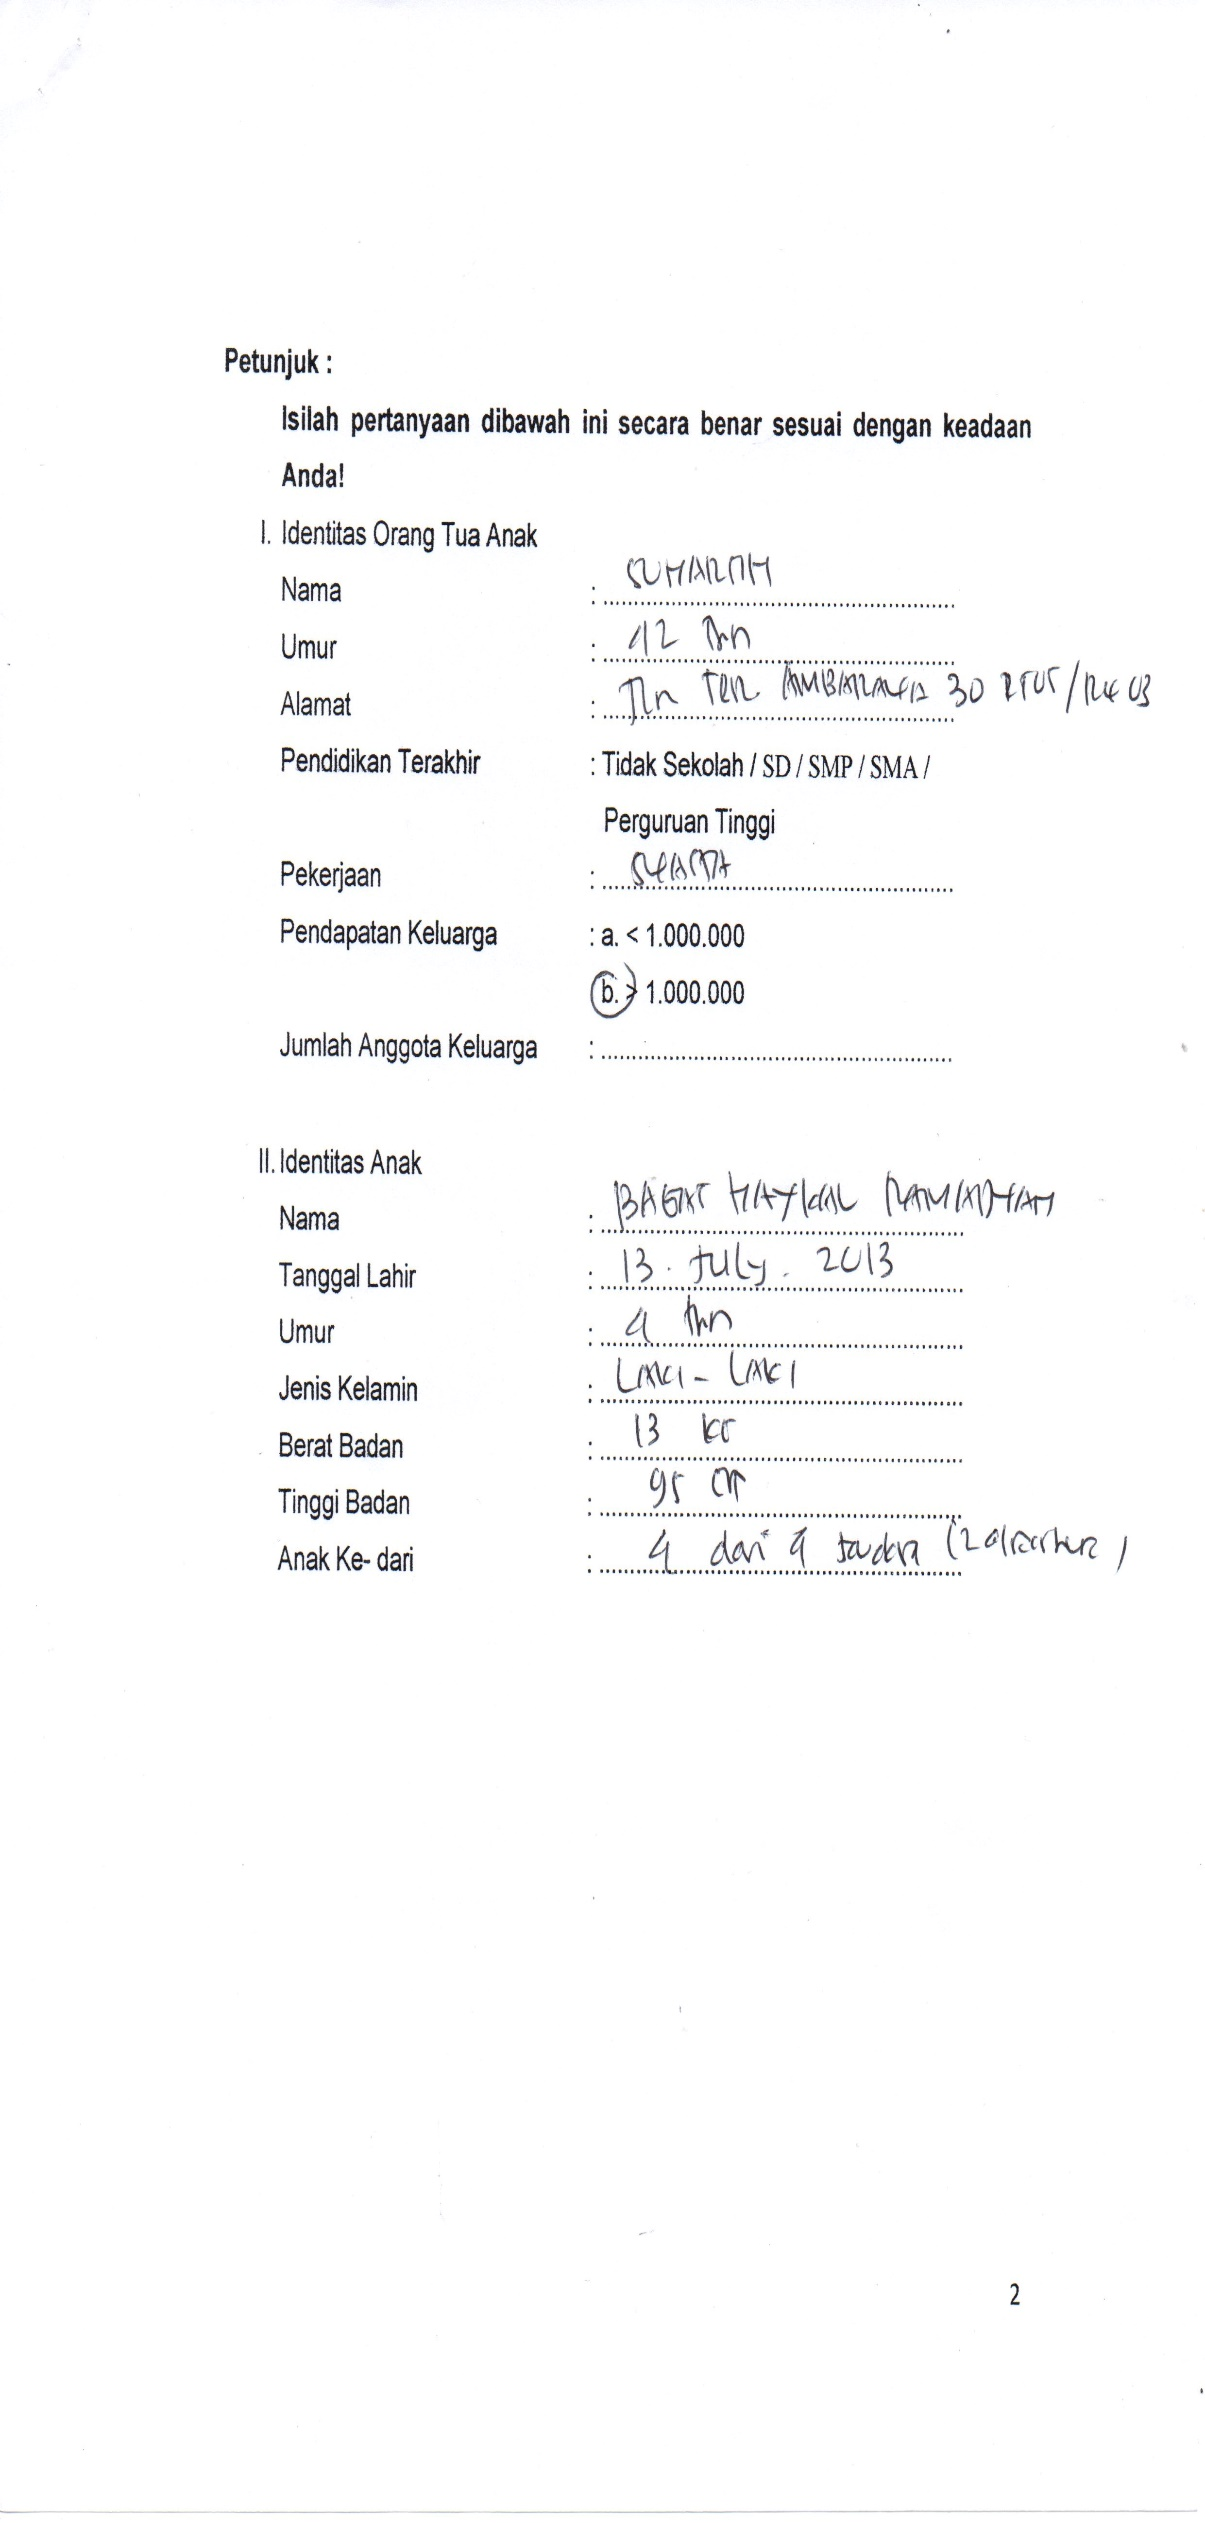 Petunjuk :
Isilah pertanyaan dibawah ini secara benar sesuai dengan keadaan
Anda!
I. Identitas Orang Tua Anak
Nama :
Umur : 42 Thn
Alamat : Jln AMBARAWA 30 RT05/RW 03
Pendidikan Terakhir : Tidak Sekolah / SD / SMP / SMA /
Perguruan Tinggi
Pekerjaan : SWASTA
Pendapatan Keluarga : a. < 1.000.000
b. > 1.000.000
Jumlah Anggota Keluarga :
II. Identitas Anak
Nama : HAYKAL RAMADHAN
Tanggal Lahir : 13. July. 2013
Umur : 4 thn
Jenis Kelamin : LAKI - LAKI
Berat Badan : 13 KG
Tinggi Badan : 95 CM
Anak Ke- dari : 4 dari 4
2